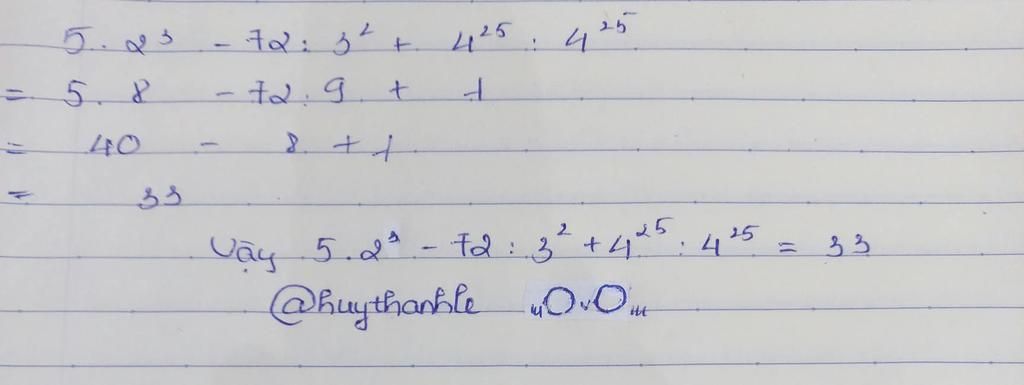 5 . 2³ - 72 : 3² + 4²⁵ : 4²⁵
= 5 . 8 - 72 : 9 + 1
= 40 - 8 + 1
= 33
Vậy 5 . 2³ - 72 : 3² + 4²⁵ : 4²⁵ = 33
@huythanhle „OvO„,